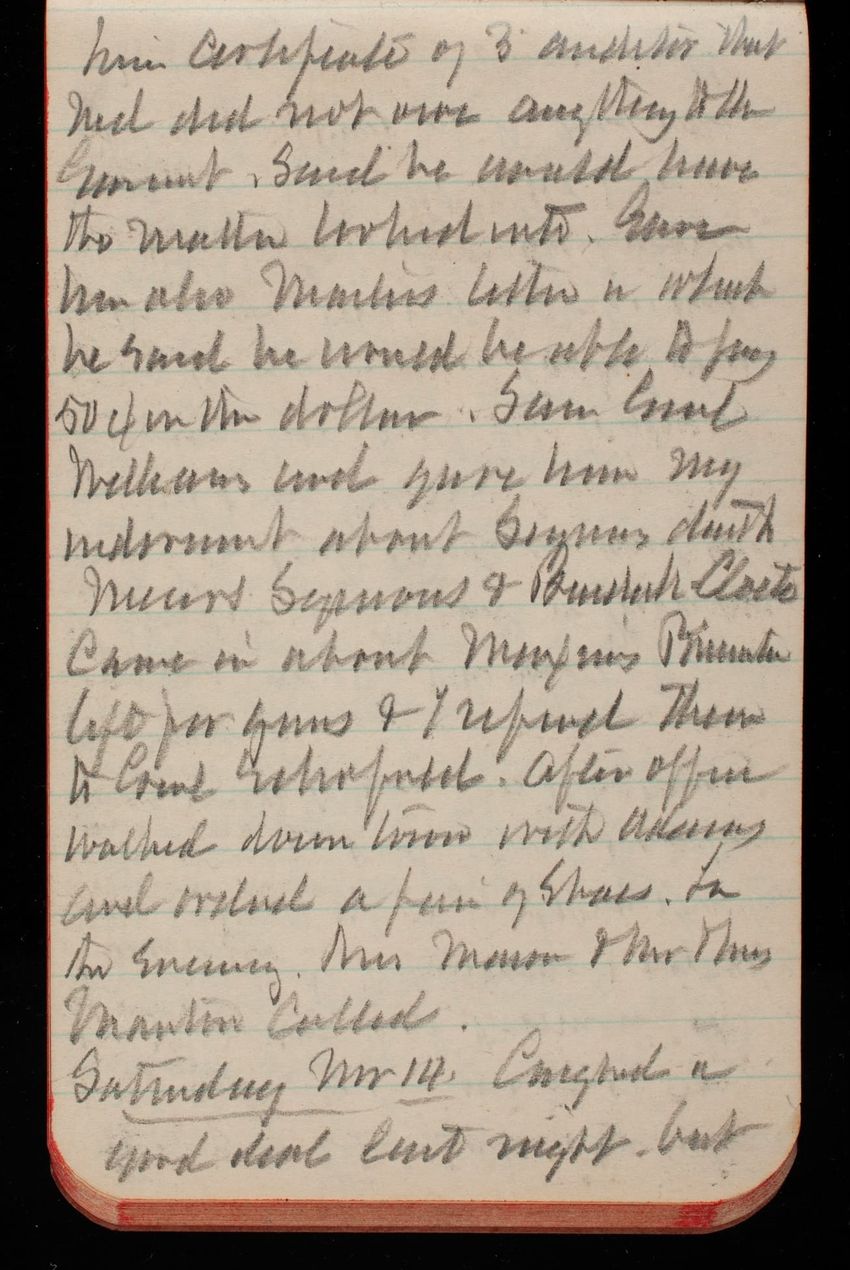 him certificate of 3 auditor that
Ned did not owe anything to the
Government. Said he would have
the matter looked into. Gave
him also letter in which
he said he would be able to pay
50 ¢ on the dollar. Saw Genl
Williams and gave him my
about death
Messrs &
Came in about
left for guns & I referred them
to Genl Schofield. After office
walked down town with Adams
and ordered a pair of Shoes. In
the Evening. Mrs Mason & Mr
Martin Called.
Saturday Nov 14. Coughed a
good deal last night. but